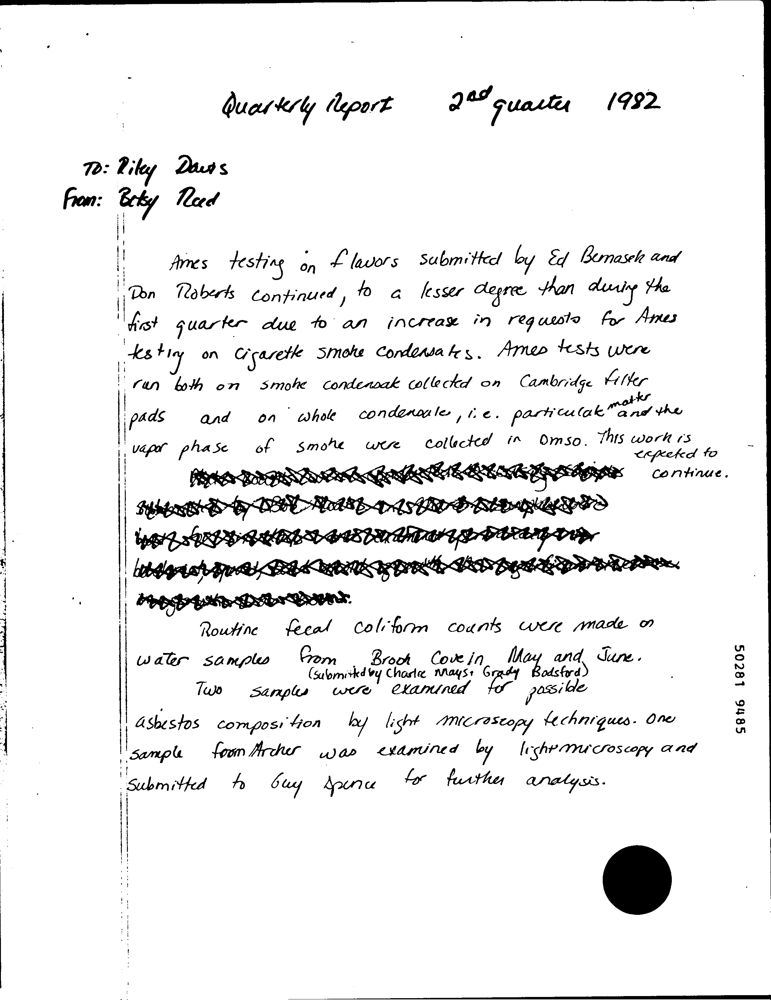 Quarterly Report 2nd quarter 1982
To: Riley Davis
From: Betsy Reed
Ames testing on flavors submitted by Ed Bernasek and
Don Roberts continued, to a lesser degree than during the
first quarter due to an increase in requests for Ames
testing on cigarette smoke condensates. Ames tests were
run both on smoke condensate collected on Cambridge filter
pads and on whole condensate, i.e. particulate matter and the
vapor phase of smoke were collected in DMSO. This work is
expected to
continue.
Routine fecal coliform counts were made on
water samples from Brook Cove in May and June.
(submitted by Charlie Mays + Grady Bodsford)
Two samples were examined for possible
asbestos composition by light microscopy techniques. One
sample from Archer was examined by light microscopy and
submitted to Guy Spence for further analysis.
50281 9485